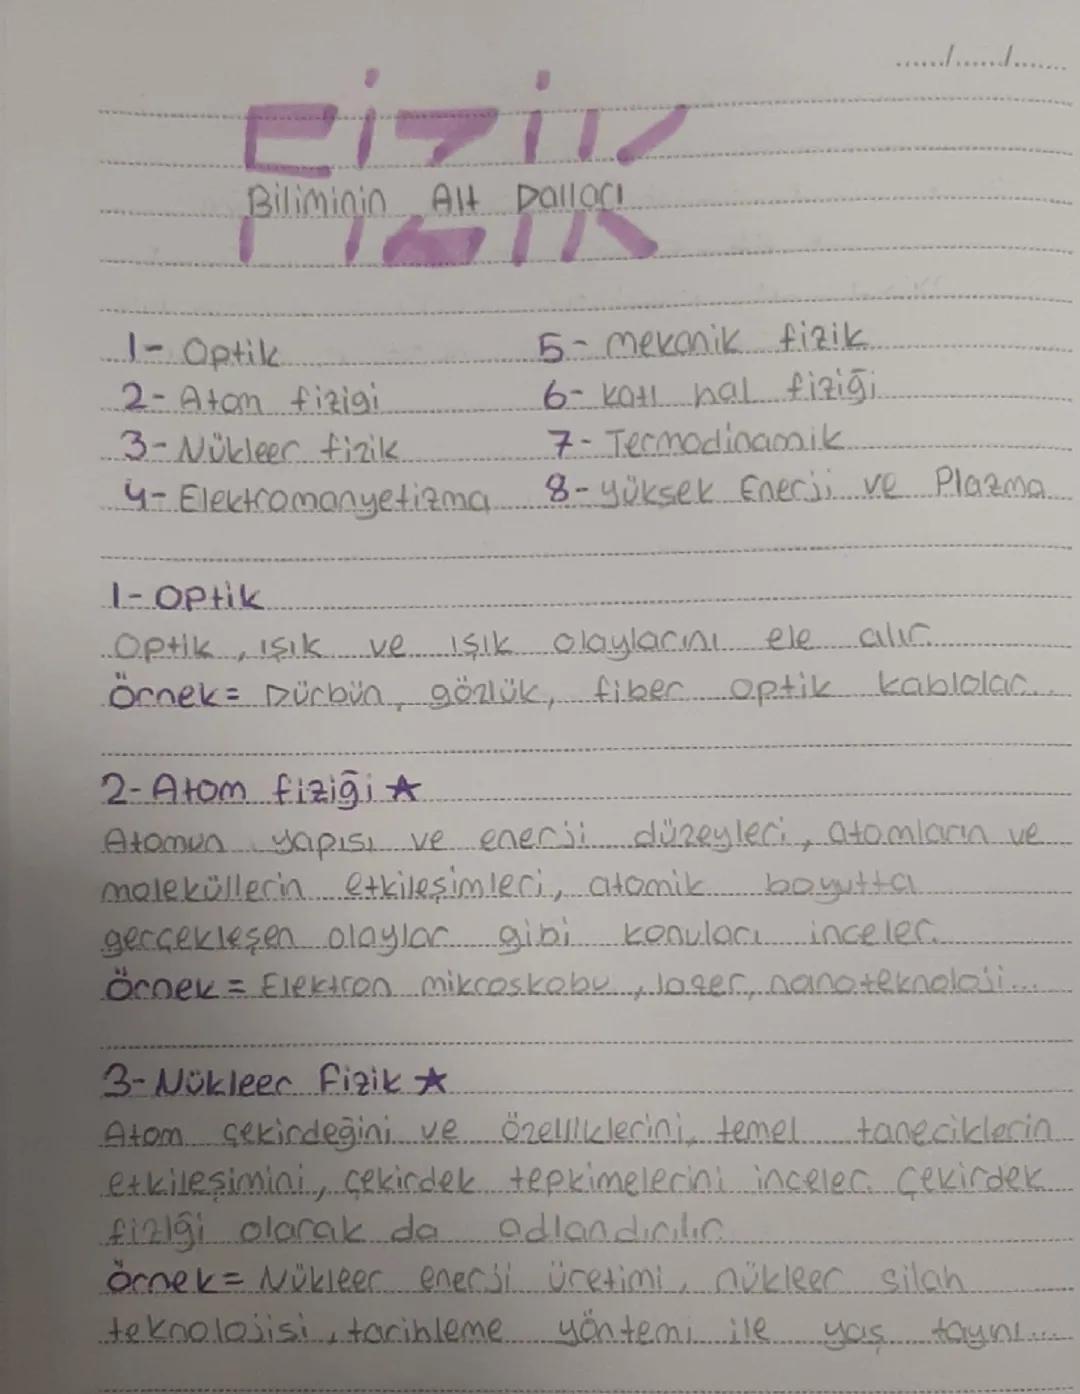 FİZİK
Biliminin Alt Dalları
1- Optik
2- Atom fizigi
3- Nükleer fizik
4- Elektromanyetizma
5- mekanik fizik
6- katı hal fiziği
7- Termodinamik
8- yüksek Enerji ve Plazma
1- Optik
Optik, ışık ve ışık olaylarını ele alır.
Örnek= Dürbün, gözlük, fiber optik kablolar...
2- Atom fiziği ★
Atomun yapısı ve enerji düzeyleri, atomların ve
moleküllerin etkileşimleri, atomik boyutta
gerçekleşen olaylar gibi konuları inceler.
Örnek = Elektron mikroskobu, lazer, nanoteknoloji...
3- Nükleer Fizik ★
Atom çekirdeğini ve özelliklerini, temel taneciklerin
etkileşimini, çekirdek tepkimelerini inceler. Çekirdek
fiziği olarak da adlandırılır.
Örnek= Nükleer enerji üretimi, nükleer silah
teknolojisi, tarihleme yöntemi ile yaş tayini...